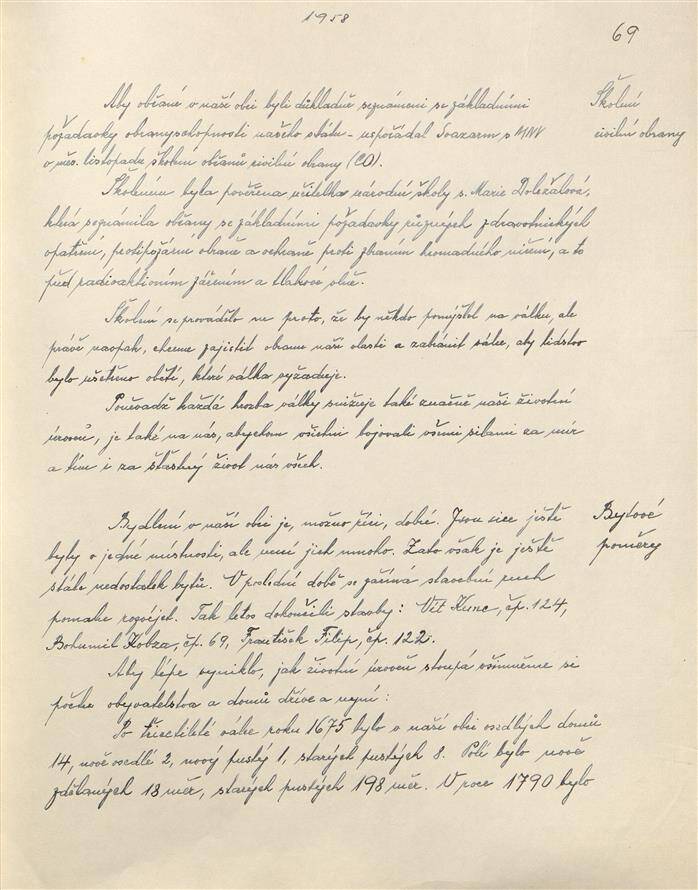 1958
69
Aby občané v naší obci byli důkladně seznámeni se základními
požadavky obranyschopnosti našeho státu - uspořádal Svazarm s MNV
v měs. listopadu školení občanů civilní obrany (CO).
Školení
civilní obrany
Školením byla pověřena učitelka národní školy s. Marie Doležalová,
která seznámila občany se základními požadavky různých zdravotnických
opatření, protipožární obraně a ochraně proti zbraním hromadného ničení, a to
před radioaktivním zářením a tlakové vlně.
Školení se provádělo ne proto, že by někdo pomýšlel na válku, ale
právě naopak, chceme zajistit obranu naší vlasti a zabránit válce, aby lidstvo
bylo ušetřeno obětí, které válka vyžaduje.
Poněvadž každá hrozba války snižuje také značně naši životní
úroveň, je také na nás, abychom všichni bojovali všemi silami za mír
a tím i za šťastný život nás všech.
Bydlení v naší obci je, možno říci, dobré. Jsou sice ještě
byty o jedné místnosti, ale není jich mnoho. Zato však je ještě
stále nedostatek bytů. V poslední době se začíná stavební ruch
pomalu rozvíjet. Tak letos dokončili stavby: Vít Kunc, čp. 124,
Bohumil Kobza, čp. 69, František Filip, čp. 122.
Bytové
poměry
Aby lépe vyniklo, jak životní úroveň stoupá všimněme si
počtu obyvatelstva a domů dříve a nyní:
Po třicetileté válce roku 1675 bylo v naší obci osedlých domů
14, nově osedlé 2, nový pustý 1, starých pustých 8. Polí bylo nově
zdělaných 18 měr, starých pustých 198 měr. V roce 1790 bylo